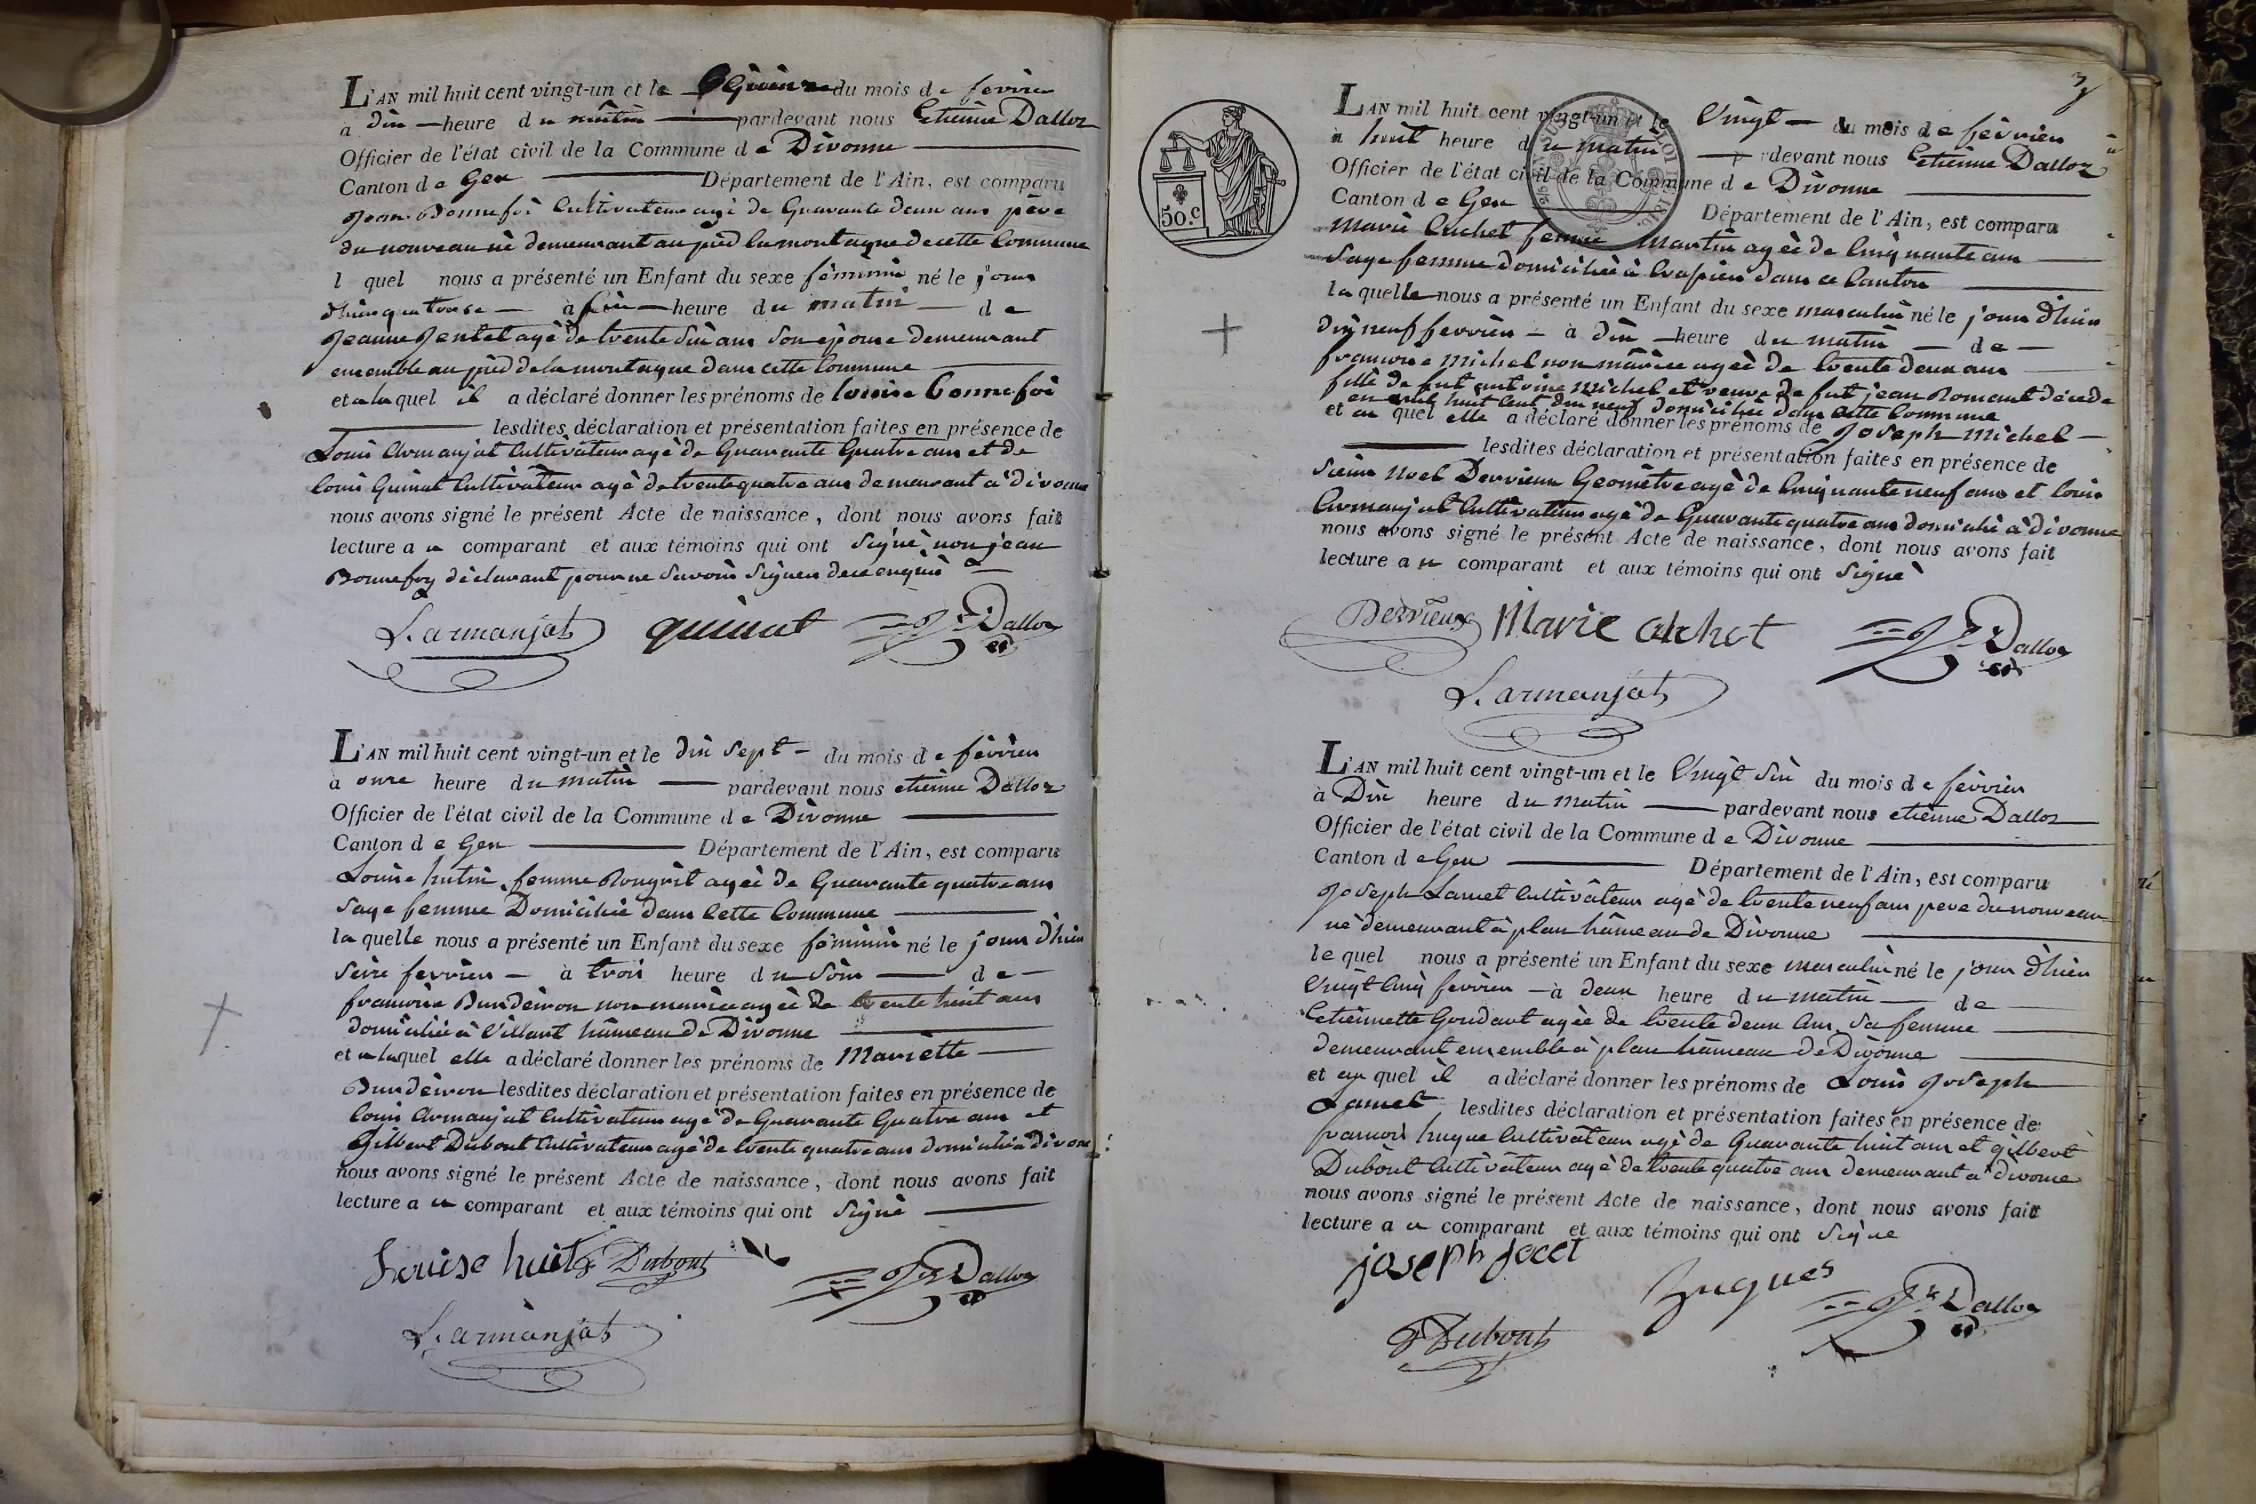 L'AN mil huit cent vingt-un et le Quinze du mois de fevrier
à dix heure du matin pardevant nous Etienne Dalloz
Officier de l'état civil de la Commune de Divonne
Canton de Gex Département de l'Ain, est comparu
Jean Bonnefoi Cultivateur agé de Quarante deux ans père
du nouveau né demeurant au pied la montagne de cette Commune
l quel nous a présenté un Enfant du sexe féminin né le jour
d'hier quatorze à six heure du matin de
Jeanne Jentet agé de trente six ans son épouse demeurant
ensemble au pied de la montagne dans cette Commune
et a la quel il a déclaré donner les prénoms de louise bonnefoi
lesdites déclaration et présentation faites en présence de
Louis Armanjat Cultivateur agé de Quarante Quatre ans et de
louis Guinat Cultivateur agé de trente quatre ans demeurant à divonne
nous avons signé le présent Acte de naissance, dont nous avons fait
lecture au comparant et aux témoins qui ont signé, non jean
Bonnefoy déclarant pour ne savoir signer de ce enquis
L. armanjat quinat Dalloz
L'AN mil huit cent vingt-un et le dix sept du mois de fèvrier
à onze heure du matin pardevant nous etienne Dalloz
Officier de l'état civil de la Commune de Divonne
Canton de Gex Département de l'Ain, est comparu
Louise hutin femme agée de Quarante quatre ans
sage femme Domiciliée dans Cette Commune
la quelle nous a présenté un Enfant du sexe féminin né le jour d'hier
seize fevrier à trois heure du soir de
francoise Bundeiron non mariée agée de trente huit ans
domiciliée à Villard hâmeau de Divonne
et a laquel elle a déclaré donner les prénoms de Mariette
Bundeiron lesdites déclaration et présentation faites en présence de
louis Armanjat Cultivateur agé de Quarante Quatre ans et
Gilbert Dubout Cultivateur agé de trente quatre ans domicilié à divonne
nous avons signé le présent Acte de naissance, dont nous avons fait
lecture au comparant et aux témoins qui ont signé
Louise huit Dubout Dalloz
L. armanjat
3
50.c
L'AN mil huit cent vingt-un et le Vingt du mois de fevrier
à huit heure du matin devant nous Etienne Dalloz
Officier de l'état civil de la Commune de Divonne
Canton de Gex Département de l'Ain, est comparu
Marie Achet femme Martin agée de Cinquante ans
sage femme domiciliée à Crassier dans ce Canton
la quelle nous a présenté un Enfant du sexe masculin né le jour d'hier
dix neuf fevrier à dix heure du matin de
francoise Michel non mariée agée de trente deux ans
fille de fut antoine Michel et veuve de fut jean Romant décédé
en avril huit Cent dix neuf domiciliée dans cette Commune
et au quel elle a déclaré donner les prénoms de Joseph Michel
lesdites déclaration et présentation faites en présence de
sieur Noel Derrieux Géomètre agé de Cinquante neuf ans et louis
Armanjat Cultivateur agé de Quarante quatre ans domicilié à divonne
nous avons signé le présent Acte de naissance, dont nous avons fait
lecture au comparant et aux témoins qui ont signé
Derrieux Marie achet Dalloz
L. armanjat
L'AN mil huit cent vingt-un et le Vingt six du mois de fèvrier
à Dix heure du matin pardevant nous etienne Dalloz
Officier de l'état civil de la Commune de Divonne
Canton de Gex Département de l'Ain, est comparu
Joseph Cultivateur agé de trente neuf ans pere du nouveau
né demeurant à plan hâmeau de Divonne
le quel nous a présenté un Enfant du sexe masculin né le jour d'hier
Vingt Cinq fevrier à deux heure du matin de
Etiennette Goudart agée de trente deux ans sa femme
demeurant ensemble à plan hâmeau de Divonne
et au quel il a déclaré donner les prénoms de Louis Joseph
lesdites déclaration et présentation faites en présence de
francois hugue Cultivateur agé de Quarante huit ans et gilbert
Dubout Cultivateur agé de trente quatre ans demeurant à divonne
nous avons signé le présent Acte de naissance, dont nous avons fait
lecture au comparant et aux témoins qui ont signe
joseph hugues Dalloz
Dubout